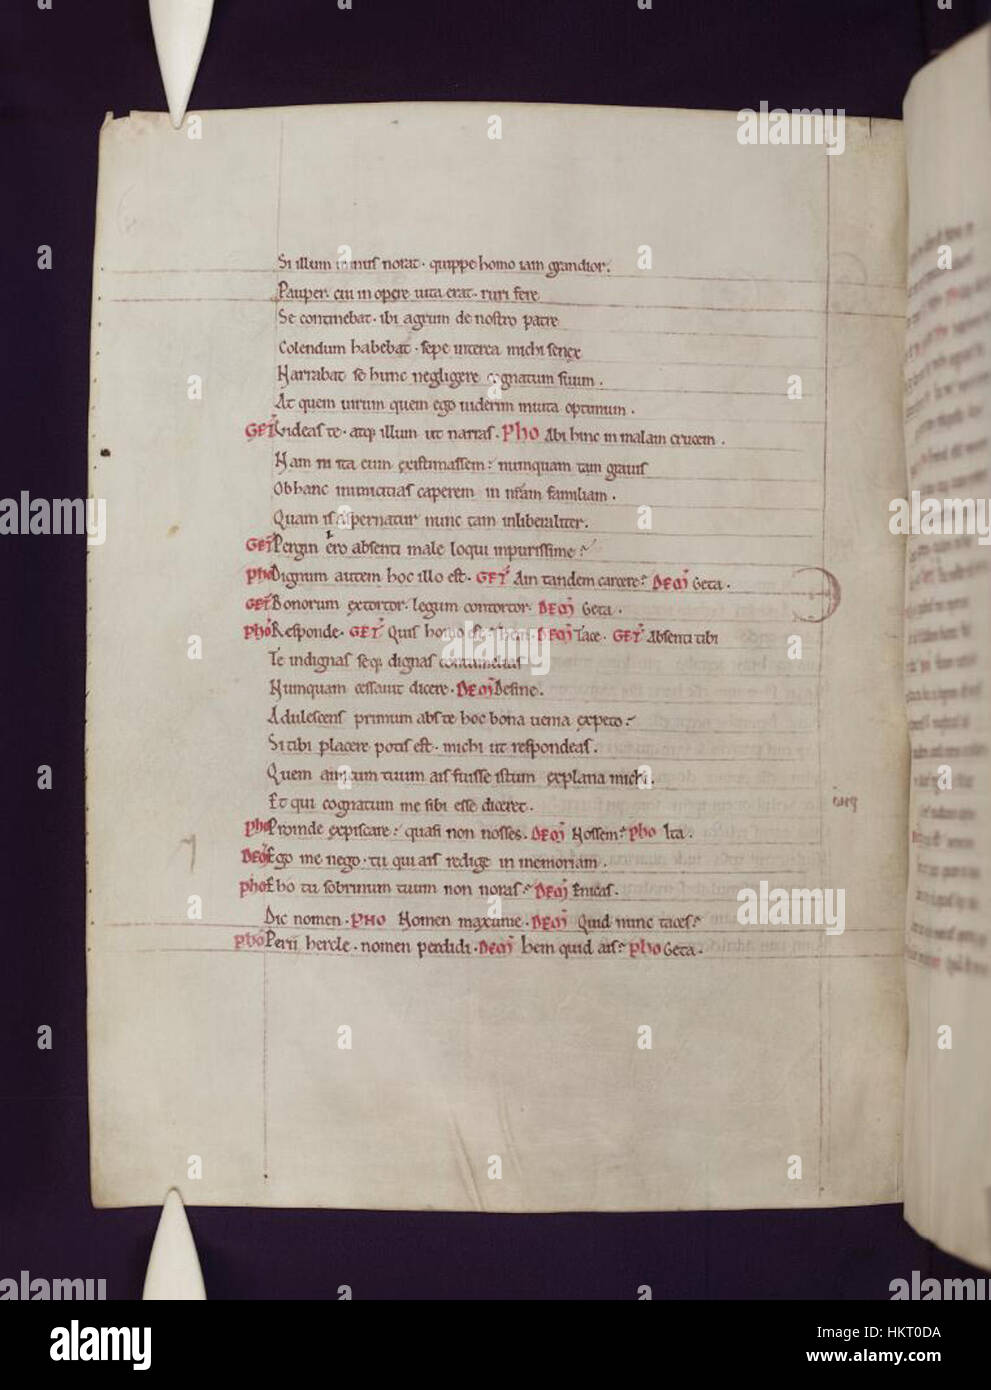 Si illum minus norat · quippe homo iam grandior.
Pauper. cui in opere uita erat · ruri fere
Se continebat · ibi agrum de nostro patre
Colendum habebat · sepe interea michi senex
Narrabat se hunc negligere cognatum suum .
At quem uirum quem ego uiderim in uita optimum .
GET Videas te · atq; illum ut narras · PHO Abi hinc in malam crucem .
Nam ni ita eum existimassem : numquam tam grauis
Ob hanc inimicitias caperem in nram familiam .
Quam is aspernatur nunc tam inliberaliter.
GET Pergin ero absenti male loqui inpurissime :
PHO Dignum autem hoc illo est · GET Ain tandem carcere : DEM Geta .
GET Bonorum extortor · legum contortor · DEM Geta .
PHO Responde · GET Quis homo est : hem · DEM Tace · GET Absenti tibi
Te indignas seq; dignas contumelias
Numquam cessauit dicere · DEM Desine .
Adulescens primum abs te hoc bona uenia expeto :
Si tibi placere potis est · michi ut respondeas .
Quem amicum tuum ais fuisse istum explana michi .
Et qui cognatum me sibi esse diceret .
PHO Proinde expiscare : quasi non nosses · DEM Nossem : PHO Ita .
DEM Ego me nego · tu qui ais redige in memoriam .
PHO Eho tu sobrinum tuum non noras : DEM Enicas .
Dic nomen · PHO Nomen maxume · DEM Quid nunc taces :
PHO Perii hercle · nomen perdidi · DEM hem quid ais : PHO Geta .
alamy
Image ID: HKT0DA
www.alamy.com